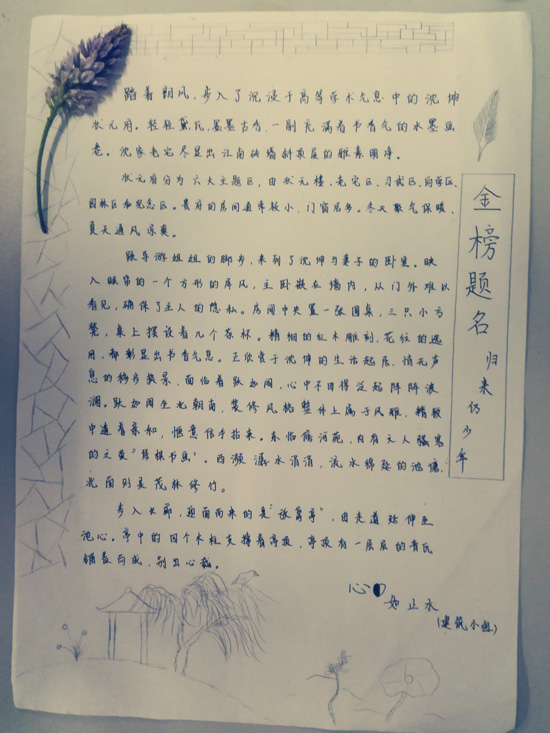 金榜题名
归来仍少年
踏着朔风，步入了沉浸于高等学术气息中的沈坤
状元府。轻轻黛瓦，墨墨古香，一副充满着书香气的水墨画
卷。沈家老宅尽显出江南砖墙斜顶屋的雅素明净。
状元府分为六大主题区，由状元楼，老宅区，习武区，向学区，
园林区和纪念区。贵府的房间通常较小，门窗居多。冬天聚气保暖，
夏天通风凉爽。
跟导游姐姐的脚步，来到了沈坤与妻子的卧里。映
入眼帘的一个方形的屏风，主卧嵌在墙内，从门外难以
看见，确保了主人的隐私。房间中央置一张圆桌，三只小方
凳，桌上摆设着几个茶杯。精细的红木雕刻，花纹的运
用，都彰显出书香气息。正欣赏于沈坤的生活起居，悄无声
息的移步换景，面临着跃如阁，心中不由得泛起阵阵波
澜。跃如阁坐北朝南，装修风格整体上属于风雅，精致
中透着柔和，惬意信手拈来。东临荷苑，内有文人骚客
的文房"琴棋书画"。西濒潺水涓涓，流水绵延的池塘，
北面则是茂林修竹。
步入长廊，迎面而来的是"亭"，由走道延伸至
池心。亭中的四个木柱支撑着亭顶，亭顶有一层层的青瓦
铺叠而成，别出心裁。
心
如止水
(建筑小组)